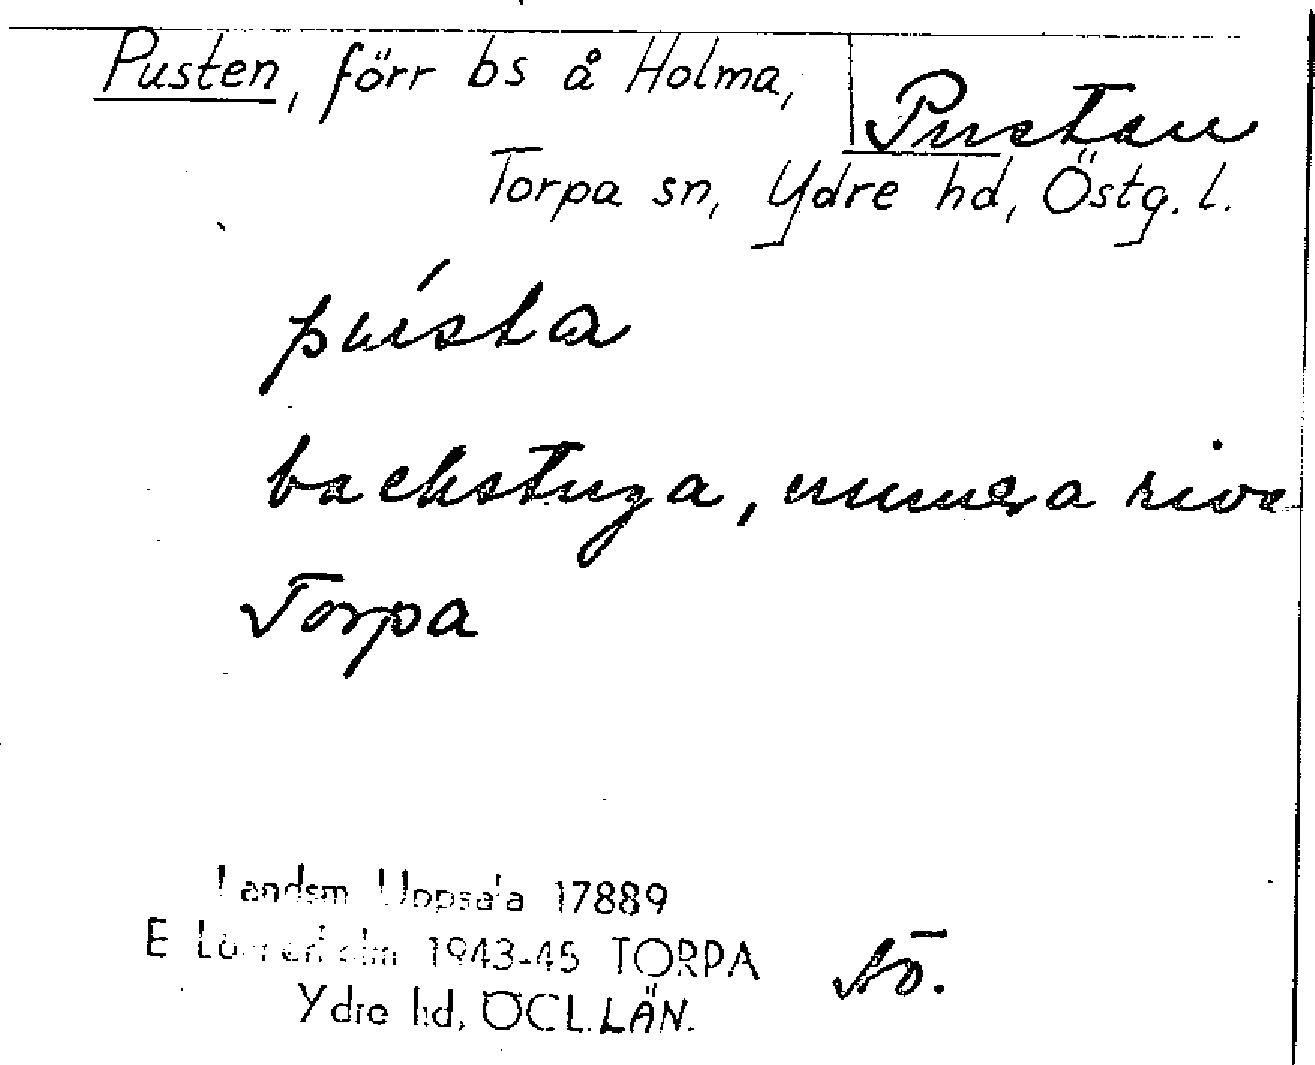 Pusten, förr bs å Holma,
Pustan
Torpa sn, Ydre hd, Östg. l.
pústa
backstuga, numera rive
Torpa
Landsm Uppsala 17889
E 1943-45 TORPA
Ydre hd, ÖCL.LÄN.